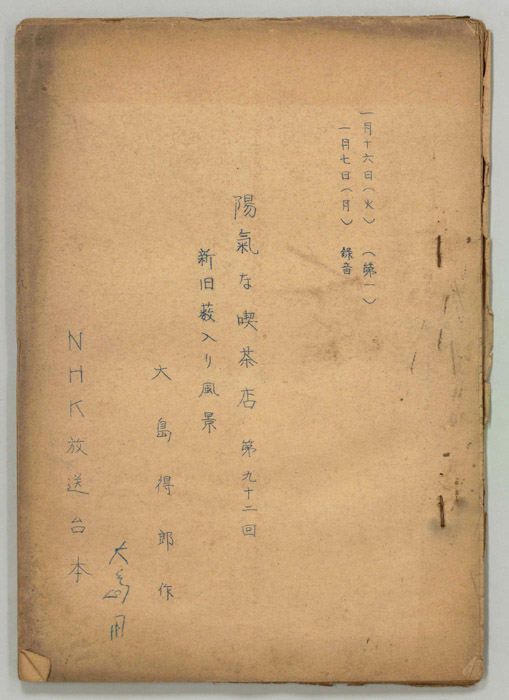 一月十六日(火) (第一)
一月七日(月) 録音
陽氣な喫茶店 第九十二回
新旧藪入り風景
大島得郎作
大島用
NHK放送台本